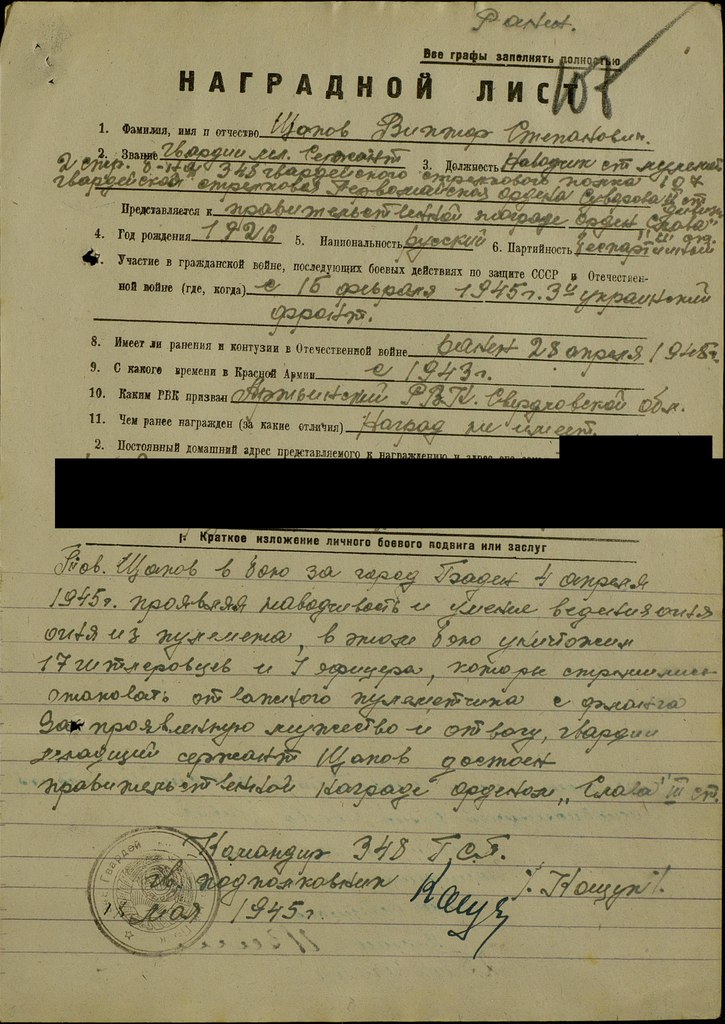 Ранен.
Все графы заполнять полностью
НАГРАДНОЙ ЛИСТ
1. Фамилия, имя и отчество Щапов Виктор Степанович.
2. Звание Гвардии мл. Сержант 3. Должность Наводчик ст. пулемета
2 стр. 348 гвардейского стрелкового полка 107
Гвардейской стрелковой Первомайской ордена Суворова II ст дивизии
Представляется к правительственной награде орден "Слава" III ст.
4. Год рождения 1926 5. Национальность русский 6. Партийность беспартийный
7. Участие в гражданской войне, последующих боевых действиях по защите СССР и Отечествен-
ной войне (где, когда) с 16 февраля 1945г. 3й украинский
фронт.
8. Имеет ли ранения и контузии в Отечественной войне ранен 28 апреля 1945г.
9. С какого времени в Красной Армии с 1943г.
10. Каким РВК призван РВК. Свердловской обл.
11. Чем ранее награжден (за какие отличия) Наград не имеет.
2. Постоянный домашний адрес представляемого к награждению и адрес его
I. Краткое изложение личного боевого подвига или заслуг
Тов. Щапов в бою за город 4 апреля
1945г. проявляя находчивость и умение ведения огня
огня из пулемета, в этом бою уничтожил
17 гитлеровцев и 1 офицера, которы стремились
атаковать пулеметчика с фланга
За проявленную мужество и отвагу, гвардии
младший сержант Щапов достоен
правительственной награде орденом „Слава" III ст.
Командир 348 Г.С.П.
гв. подполковник /. Кощук /.
мая 1945г